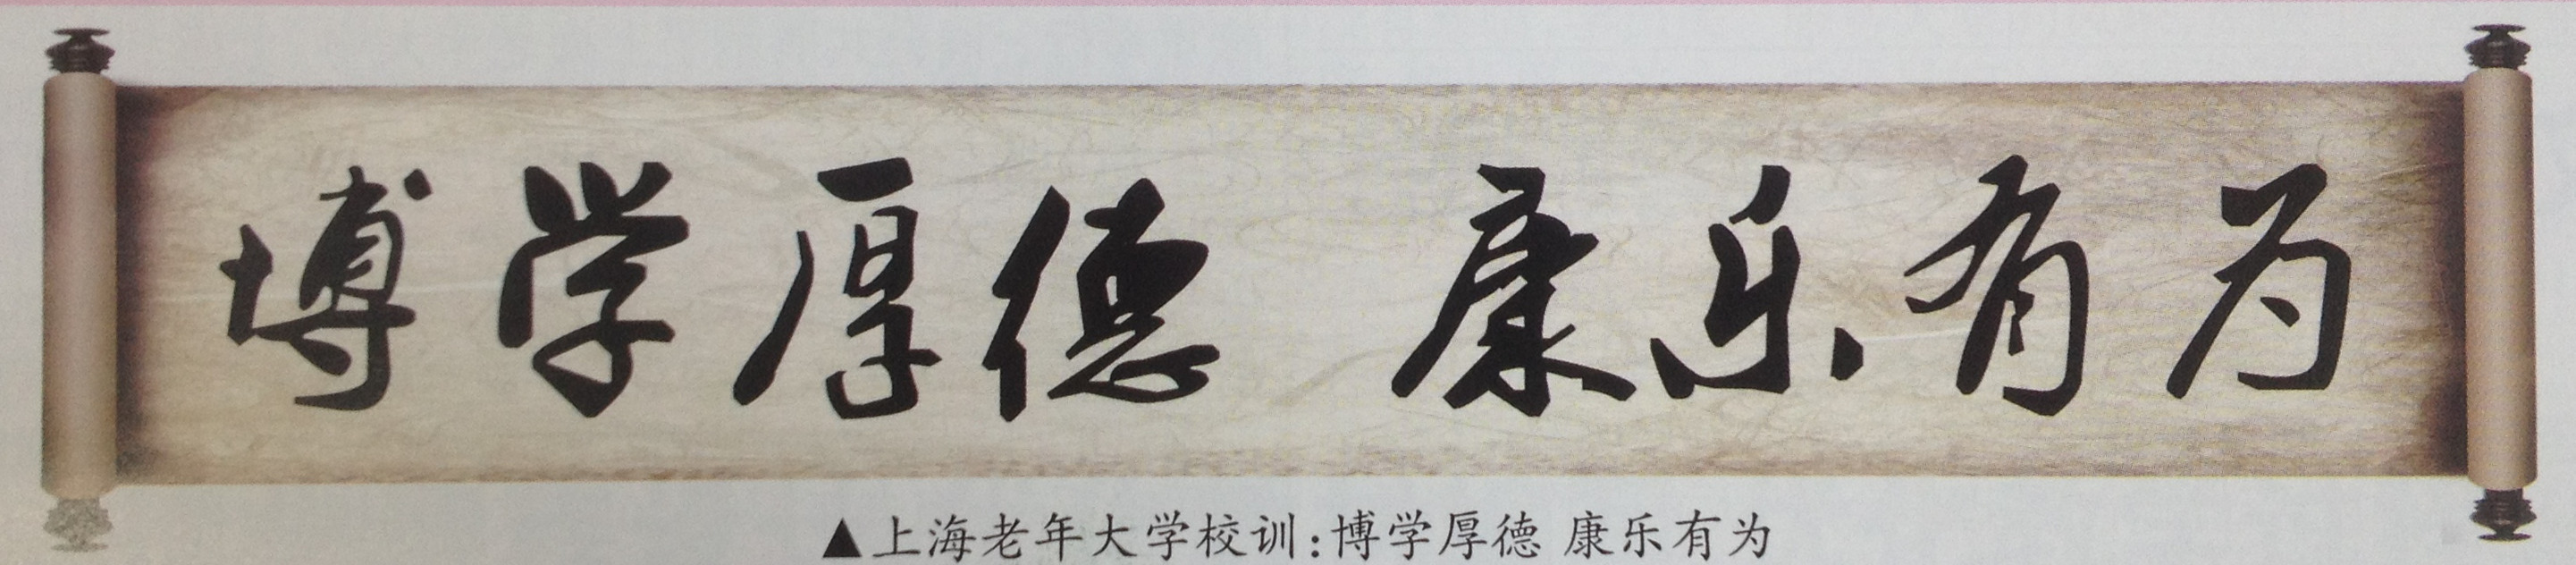 博学厚德 康乐有为
▲上海老年大学校训:博学厚德 康乐有为